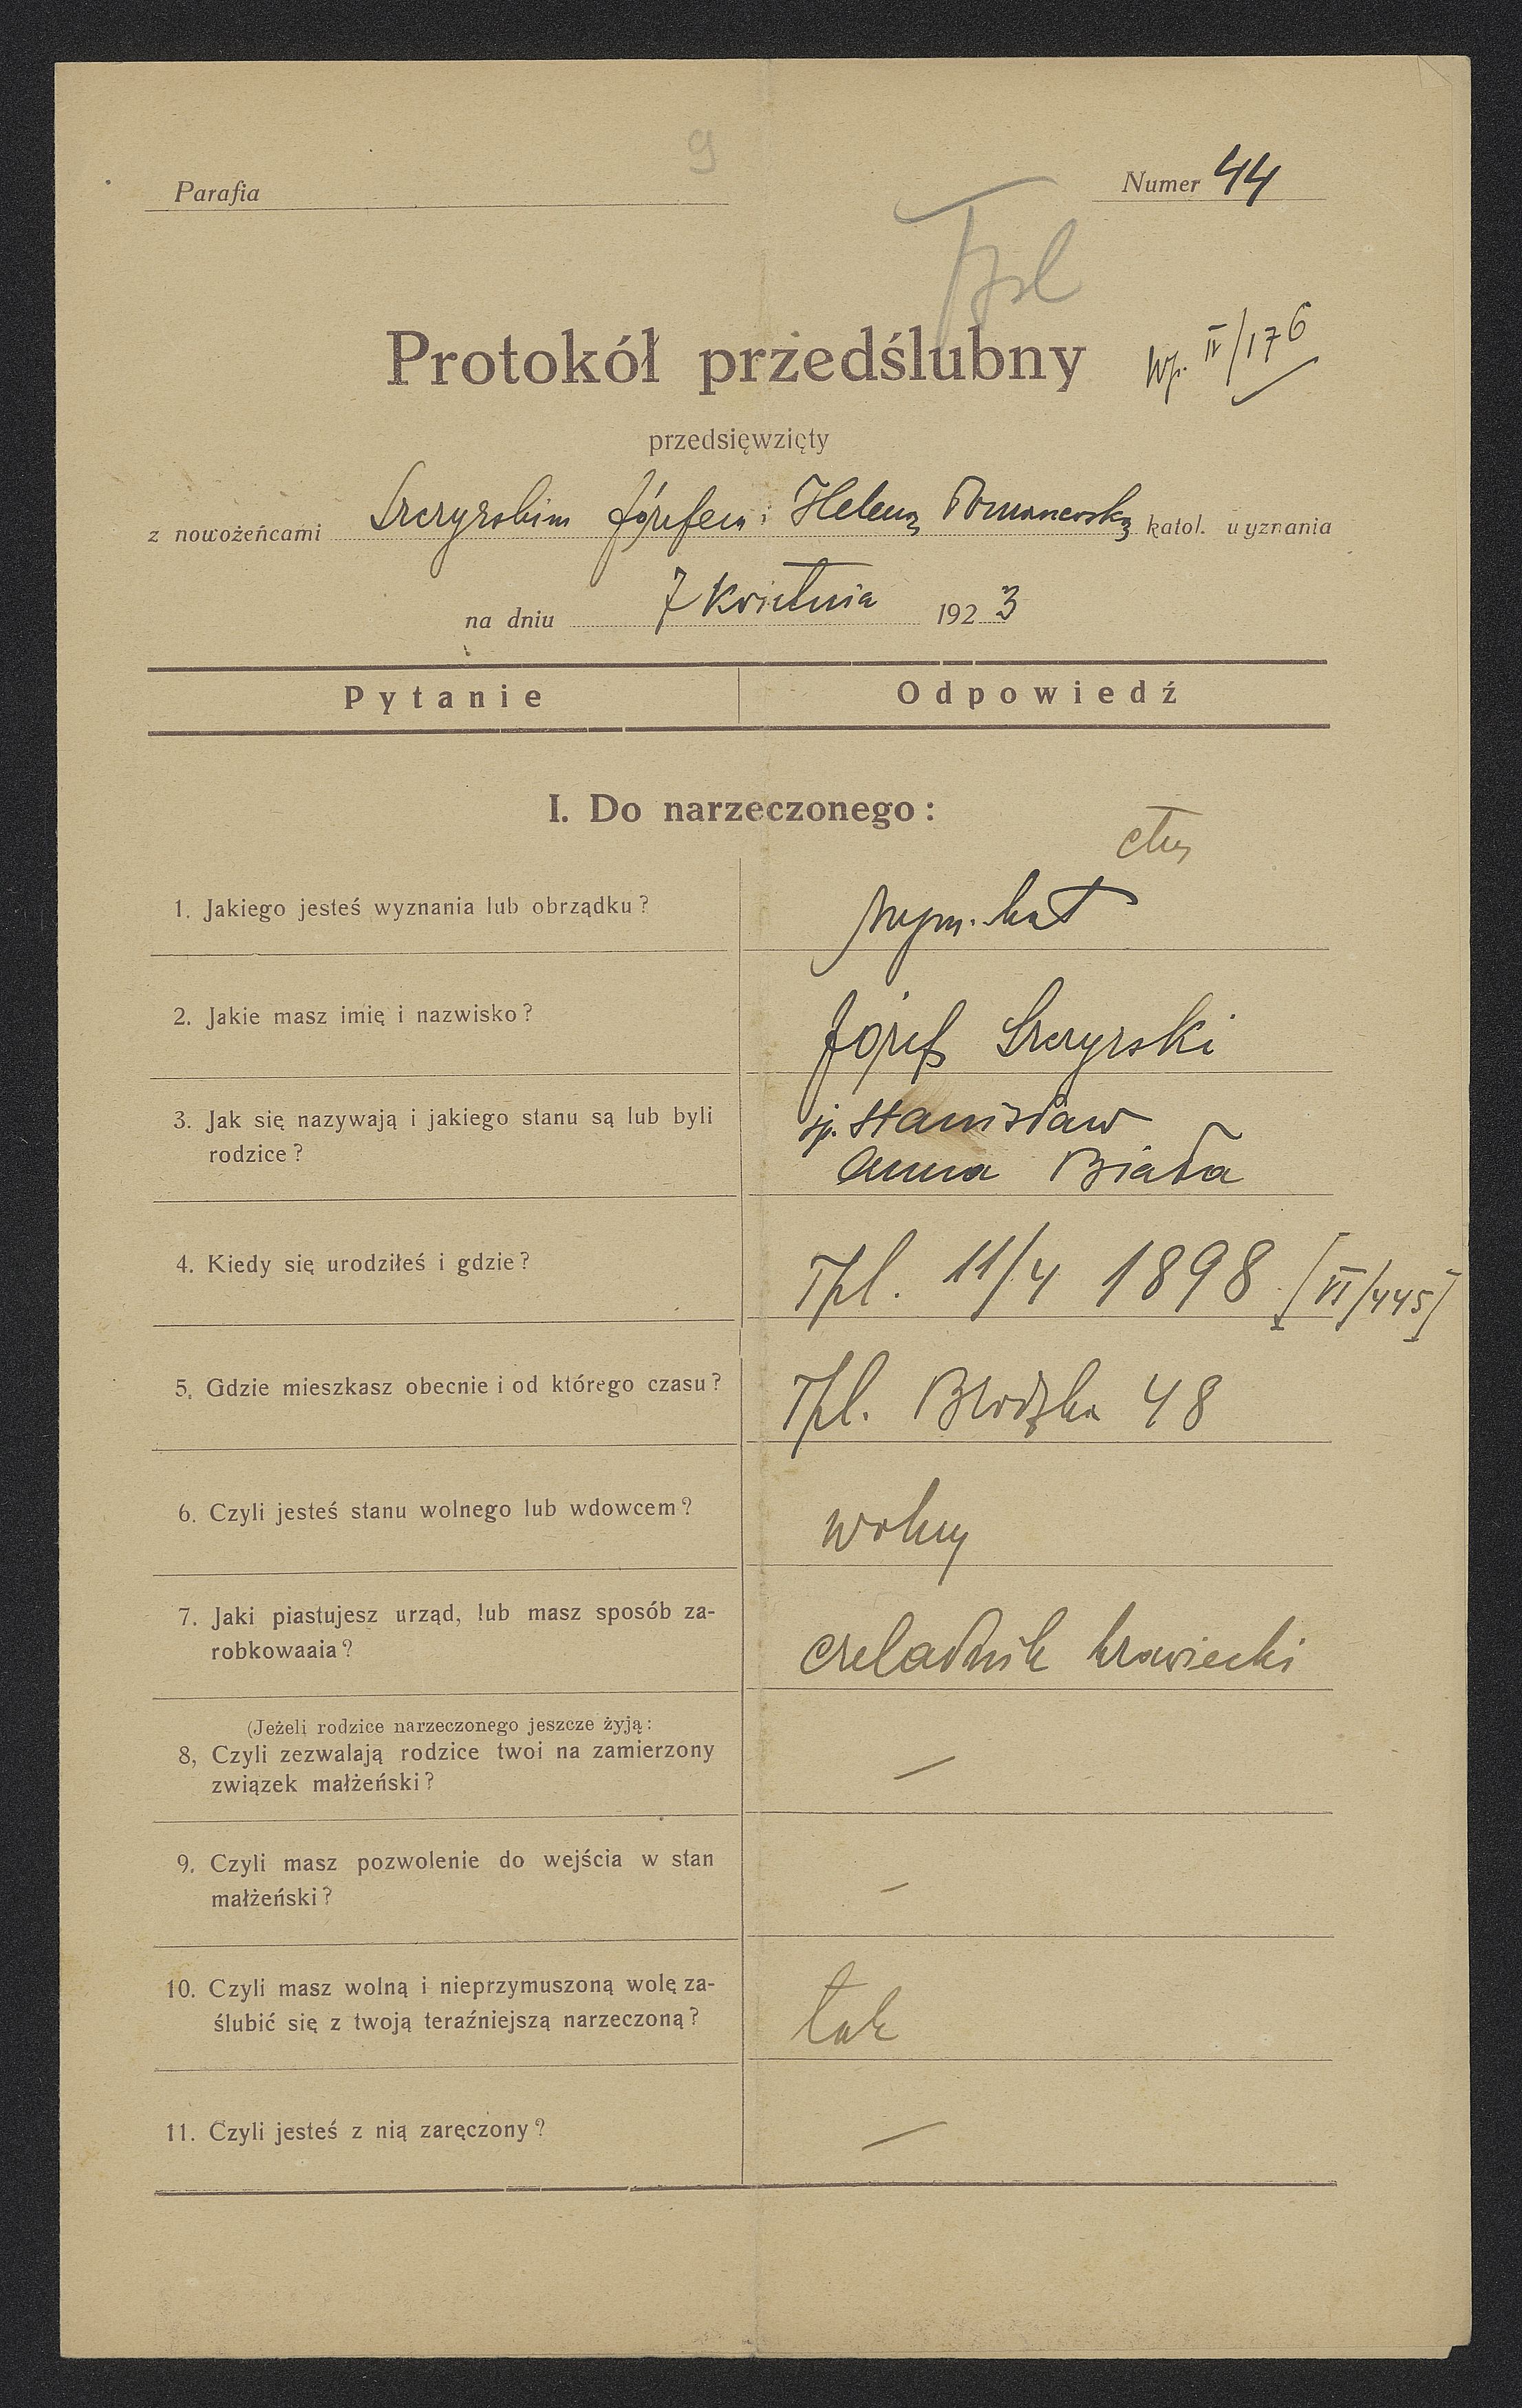 9
Parafia
Numer 44
Tpl
Protokół przedślubny
Wp. IV/176
przedsięwzięty
z nowożeńcami Szczyrskim Józefem i Heleną Romanowską katol. wyznania
na dniu 7 kwietnia 1923
Pytanie Odpowiedź
I. Do narzeczonego:
1. Jakiego jesteś wyznania lub obrządku?
rzym. kat
2. Jakie masz imię i nazwisko?
Józef Szczyrski
3. Jak się nazywają i jakiego stanu są lub byli
rodzice?
śp. Stanisław
Anna Biała
4. Kiedy się urodziłeś i gdzie?
Tpl. 11/4 1898 [VI/445]
5. Gdzie mieszkasz obecnie i od którego czasu?
Tpl. Brodzka 48
6. Czyli jesteś stanu wolnego lub wdowcem?
wolny
7. Jaki piastujesz urząd, lub masz sposób za-
robkowaaia?
czeladnik krawiecki
(Jeżeli rodzice narzeczonego jeszcze żyją:
8, Czyli zezwalają rodzice twoi na zamierzony
związek małżeński?
—
9. Czyli masz pozwolenie do wejścia w stan
małżeński?
—
10. Czyli masz wolną i nieprzymuszoną wolę za-
ślubić się z twoją teraźniejszą narzeczoną?
tak
11. Czyli jesteś z nią zaręczony?
—